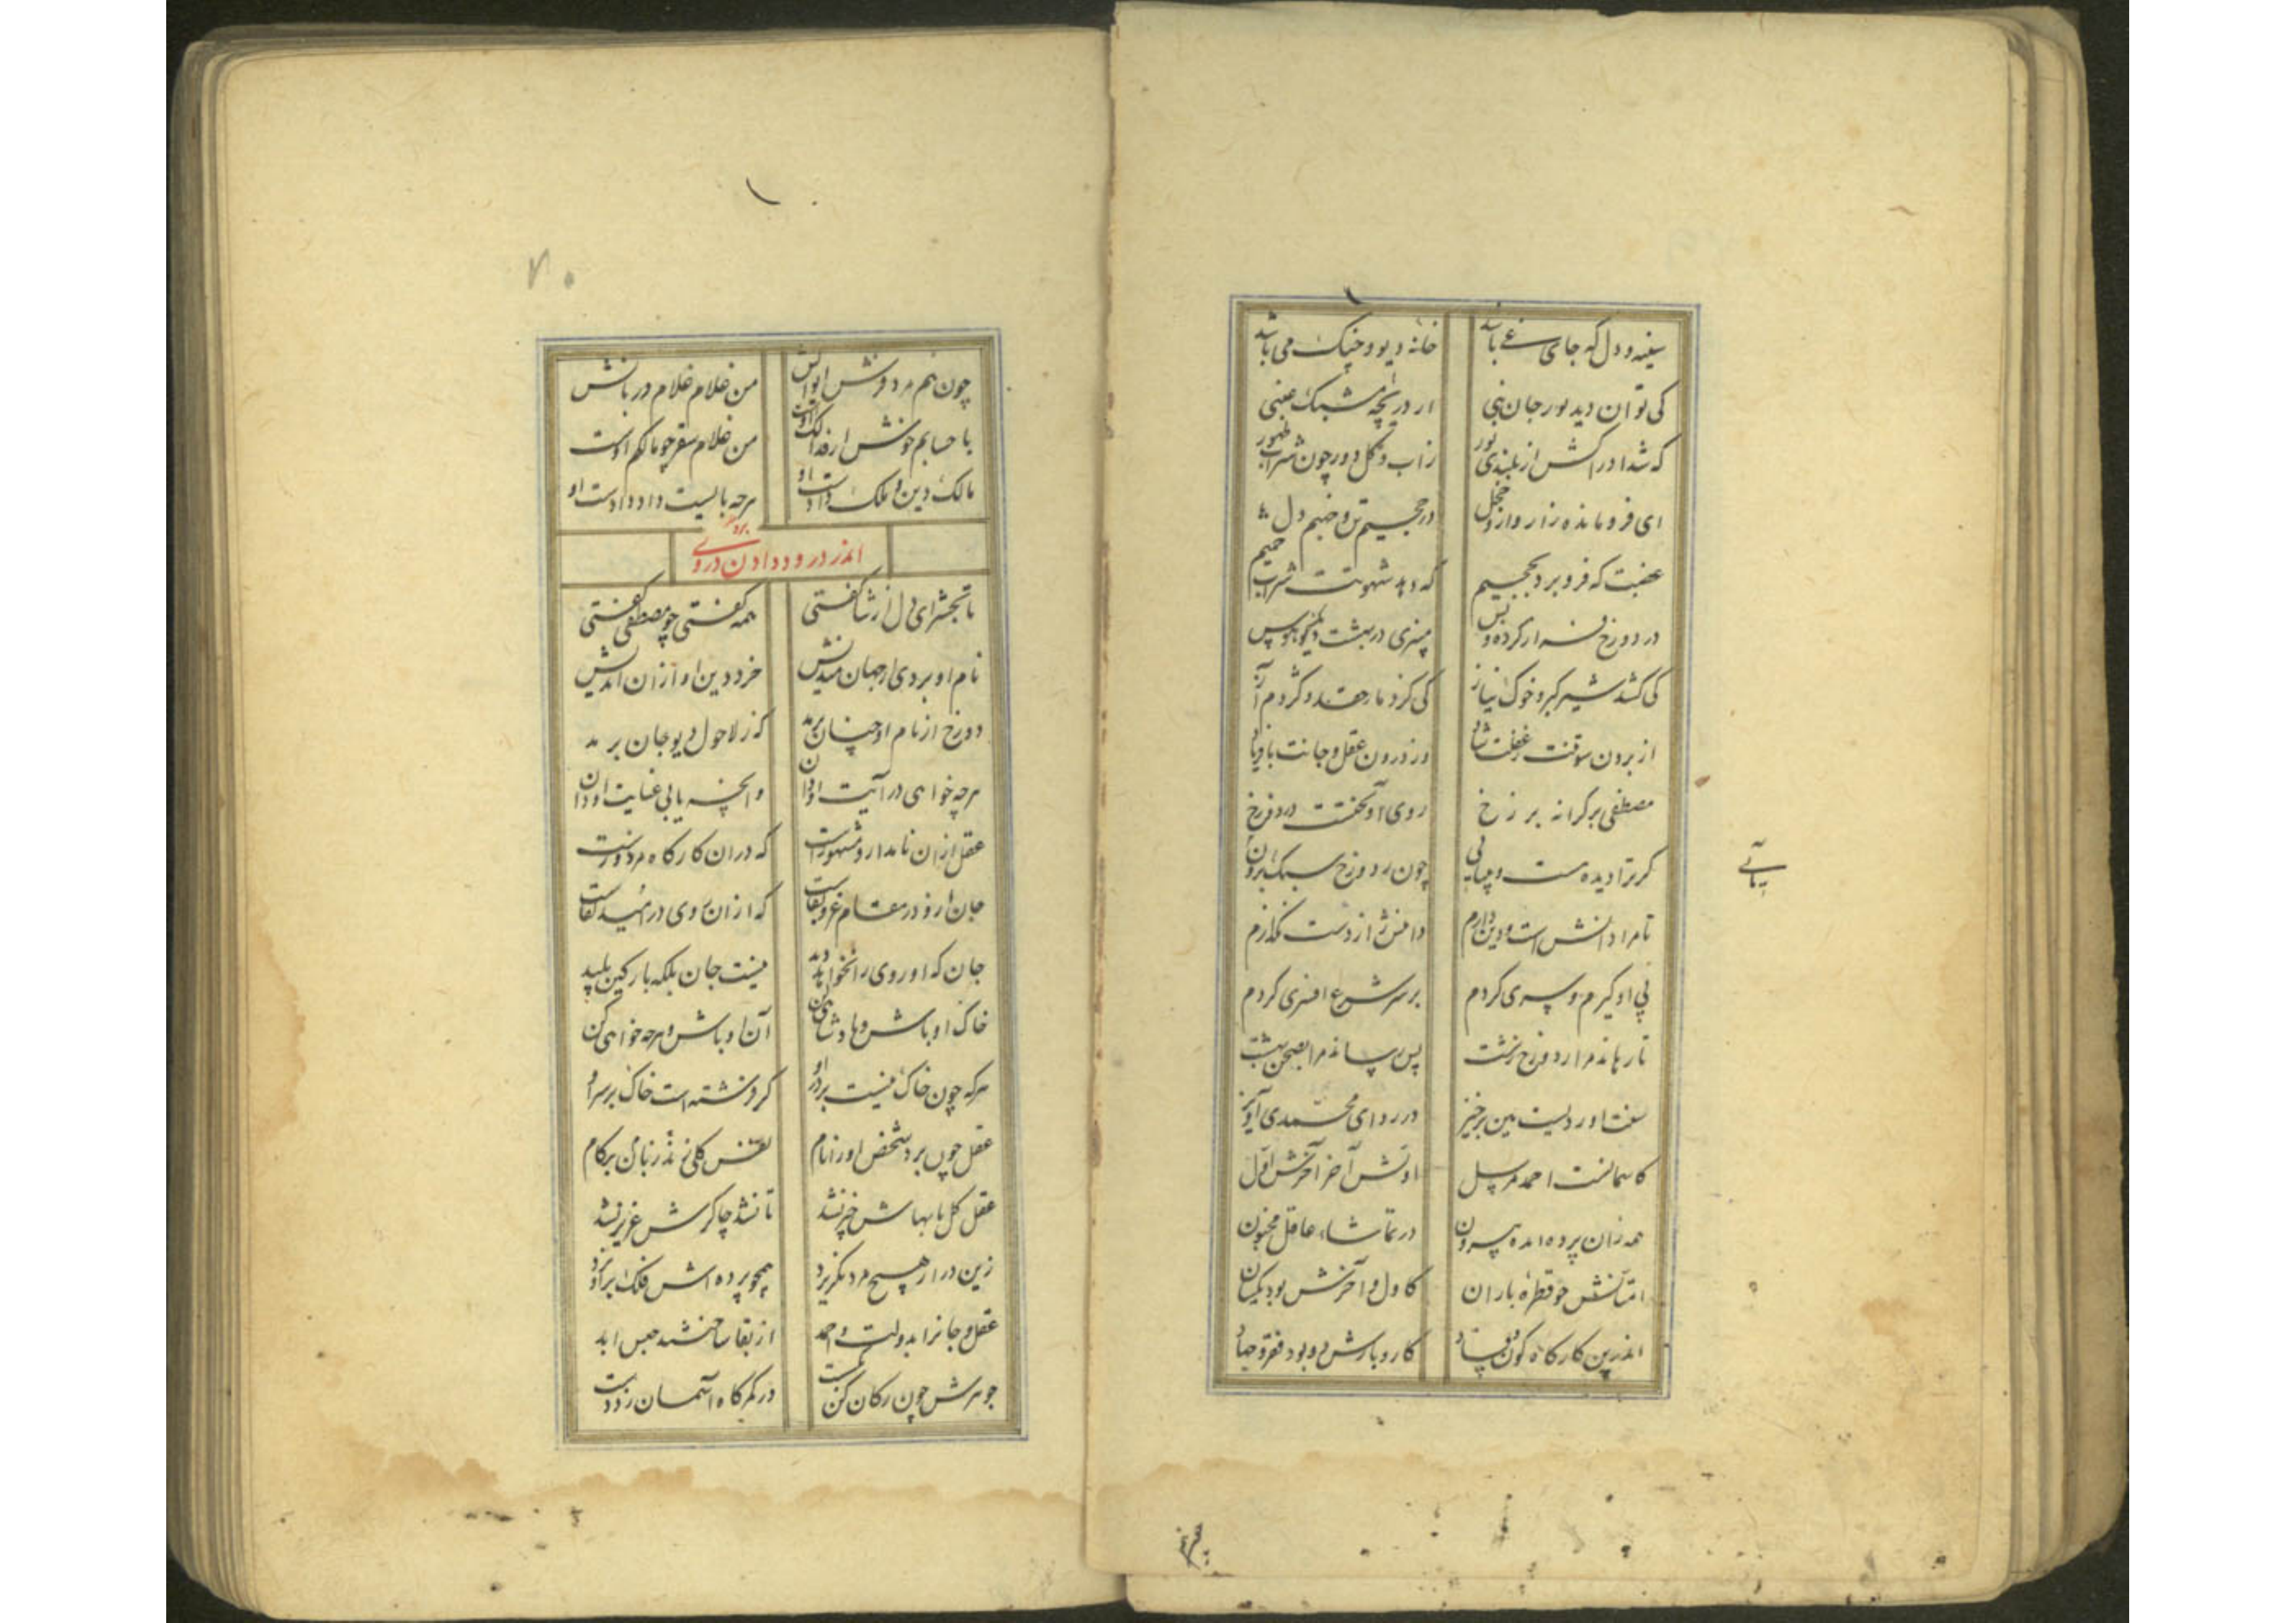 سینه و دل که جای مرغ باشد خانه دیو و چنگ می باشد
کی توان دید نور جان نبی از دریچه مشبک عنبی
که شد ادراکش از بلندی نور ز آب و گل دور چون شراب طهور
ای فرو مانده زار و وارو خجل در جحیم تن و خیم دل
غضبت که فرو برد بجحیم که دهد شهوتت شراب حمیم
در دوزخ فراز کرده و پس
کی کشد شیر کبر و خوک نیاز کی گزد مار حقد و کژدم آز
از برون سو تنت بغفلت شاد وز درون عقل و جانت با فریاد
مصطفی بر کرانه برزخ روی آو گفتت در دوزخ
گر ترا دیده هست و بینایی چون ز دوزخ سبک برون
تا مرا دانش است و دین دارم دامنش از دست نگذارم
پی او گیرم و سری گردم بر سر شرع افسری گردم
تا رهاند مرا ز دوزخ زشت پس رساند مرا بصحن بهشت
سخت شاور دلیت هین برخیز در ردای محمدی آویز
کاسمانست احمد مرسل اولش آخر آخرش اول
همه زان پرده آمده بیرون در تماشا، عاقل مجنون
امتانش چو قطره باران کاول و آخرش بود یکسان
اندرین کارگاه کون و فساد کار و بارش بود فقر و جهاد
یابی
چون نهم
چون نهم مرد وش ایوانش من غلام غلام دربانش
با حسابم خوش ار فذلک اوست من غلام سقر چو مالک اوست
مالک دین و ملک دادست او هر چه بایست داد دادست او
اندر درود دادن بر وی
تا بحشر ای دل ار ثنا گفتی همه گفتی چو مصطفی گفتی
نام او بردی از جهان مندیش خرد و دین او از آن اندیش
دوزخ از نام او چنان برمد که ز لاحول دیو جان برمد
هر چه خواهی در آیت او دان وانچه یابی عنایت او دان
عقل از آن نامدار و مشهورست که در آن کارگاه مزدورست
جان ازو در مقام عز و بقاست که از آن روی در امید لقاست
جان که او روی را نخواهد دید نیست جان بلکه پارگین پلید
خاک او باش و پادشاهی کن آن او باش و هر چه خواهی کن
هر که چون خاک نیست بر در او گر فرشته است خاک بر سر او
عقل چون برد شخص او را نام نفس کلی نهد زبان بر کام
عقل کل با بهاش خیر نشد تا نشد چاکرش عزیز نشد
زین در ار هیچ مرد نگریزد همچو پرده اش فلک بر آویزد
عقل و جان را بدولت احمد از بقا ساختند حبس ابد
جوهرش چون ز کان کن بگسست در کمرگاه آسمان زد دست